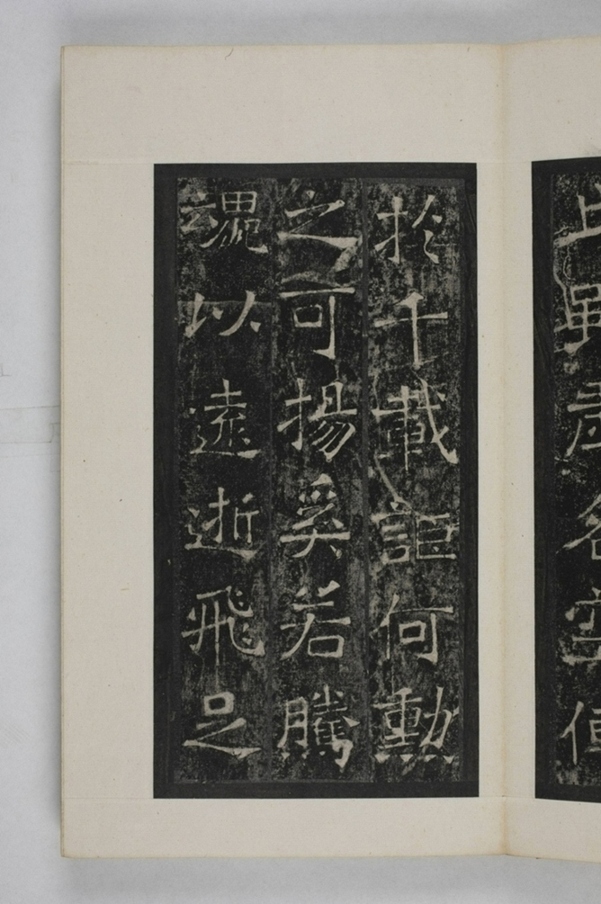 於千載詎何勳
之可揚奚若騰
魂以遠逝飛足